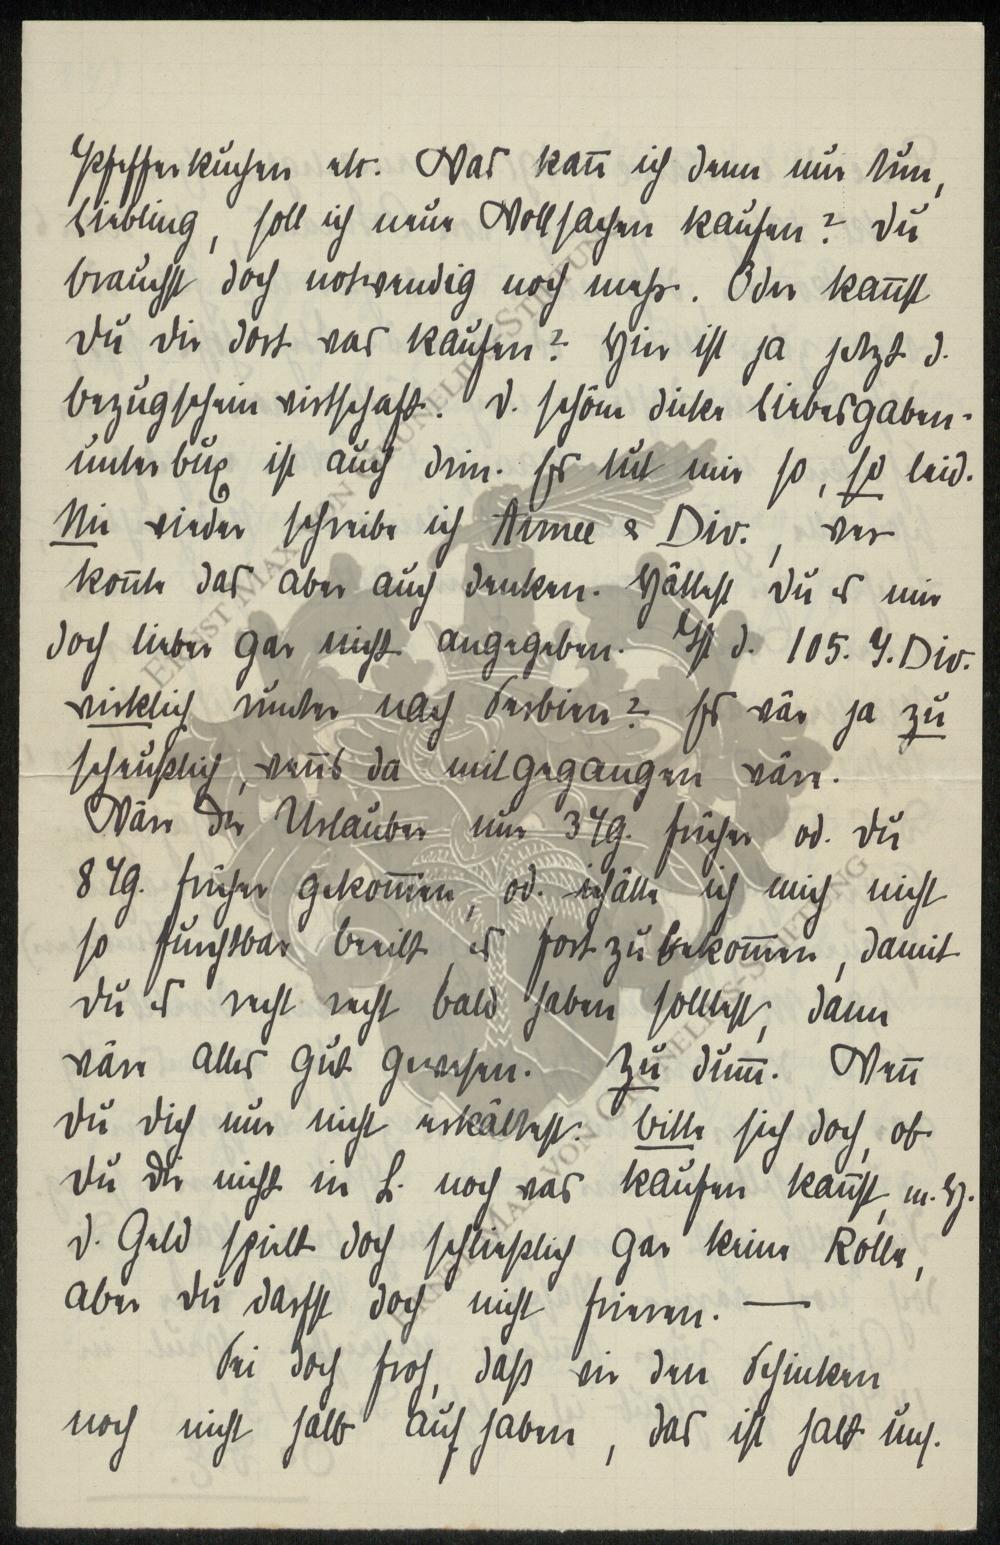 Pfefferkuchen etc. Was kan̄ ich denn nur tun,
Liebling, soll ich neue Wollsachen kaufen? Du
brauchst doch notwendig noch mehr. Oder kan̄st
Du Dir dort was kaufen? Hier ist ja jetzt d.
bezugscheinwirtschaft. D. schöne dicke Liebesgaben-
unterbux ist auch drin. Es tut mir so, so leid.
Nie wieder schreibe ich Armee & Div., wer
kon̄te das aber auch denken. Hättest Du es mir
doch lieber gar nicht angegeben. Ist d. 105. I. Div.
wirklich runter nach Serbien? Es wär ja zu
scheußlich, wen̄s da mitgegangen wäre.
Wäre der Urlauber nur 3 Tg. früher od. Du
8 Tg. früher gekom̄en, od. hätte ich mich nicht
so furchtbar beeilt es fortzubekom̄en, damit
Du es recht recht bald haben solltest, dann
wäre alles gut gewesen. Zu dum̄. Wen̄
Du Dich nur nicht erkältest. bitte sieh doch, ob
Du Dir nicht in L. noch was kaufen kan̄st, m. H.
d. Geld spielt doch schließlich gar keine Rolle,
aber Du darfst doch nicht frieren. —
Sei doch froh, daß wir den Schinken
noch nicht halb auf haben, das ist halt uns.
ERNST MAX VON GRUNELIUS-STIFTUNG
ERNST MAX VON GRUNELIUS-STIFTUNG